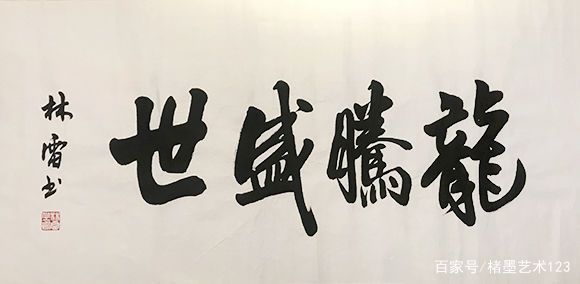 龍騰盛世
林雷书
百家号/楮墨艺术123